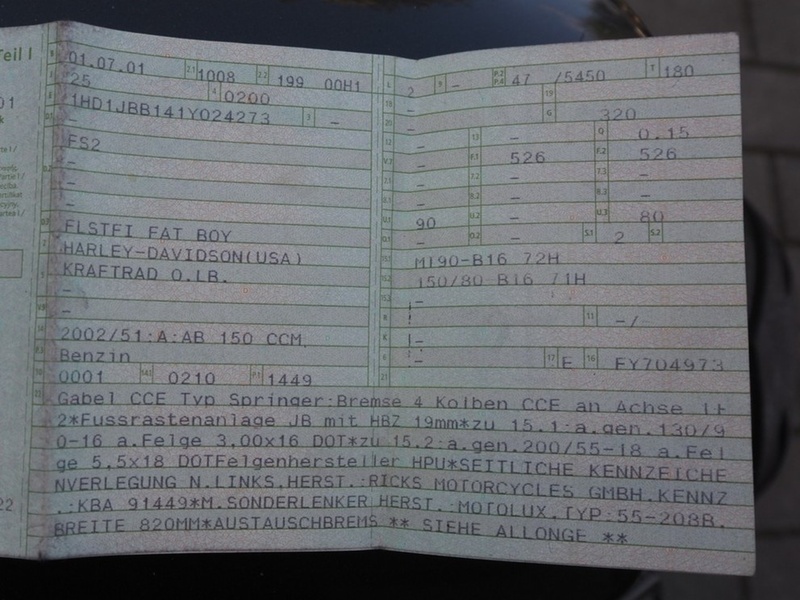 Teil I
01.07.01 2.1 1008 2.2 199 00H1
25 4 0200
1HD1JBB141Y024273 3 –
–
FS2
–
–
–
FLSTFI FAT BOY
HARLEY-DAVIDSON(USA)
KRAFTRAD O.LB.
–
–
2002/51:A:AB 150 CCM
Benzin
0001 14.1 0210 P.1 1449
2 9 – P.2 P.4 47 /5450 T 180
– 19
– G 320
– 13 – Q 0.15
– F.1 526 F.2 526
– 7.2 – 7.3 –
– 8.2 – 8.3 –
90 U.2 – U.3 80
– O.2 – S.1 2 S.2
M190-B16 72H
150/80 B16 71H
–
– 11 –/
–
– 17 E 16 FY704973
21
Gabel CCE Typ Springer:Bremse 4 Kolben CCE an Achse lt
2*Fussrastenanlage JB mit HBZ 19mm*zu 15.1:a.gen.130/9
0-16 a.Felge 3,00x16 DOT*zu 15.2:a.gen.200/55-18 a.Fel
ge 5,5x18 DOTFelgenhersteller HPU*SEITLICHE KENNZEICHE
NVERLEGUNG N.LINKS,HERST.:RICKS MOTORCYCLES GMBH,KENNZ
.:KBA 91449*M.SONDERLENKER HERST.:MOTOLUX,TYP:55-208B,
BREITE 820MM*AUSTAUSCHBREMS ** SIEHE ALLONGE **